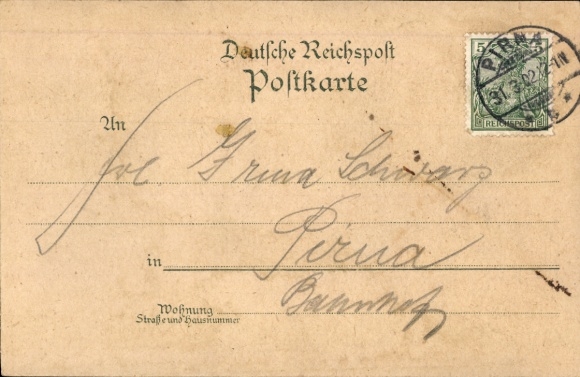 Deutsche Reichspost
Postkarte
5 5
REICHSPOST
PIRNA
31.3.02
An
Frl Irma Schwarz
in Pirna
Bahnhof
Wohnung
Straße und Hausnummer